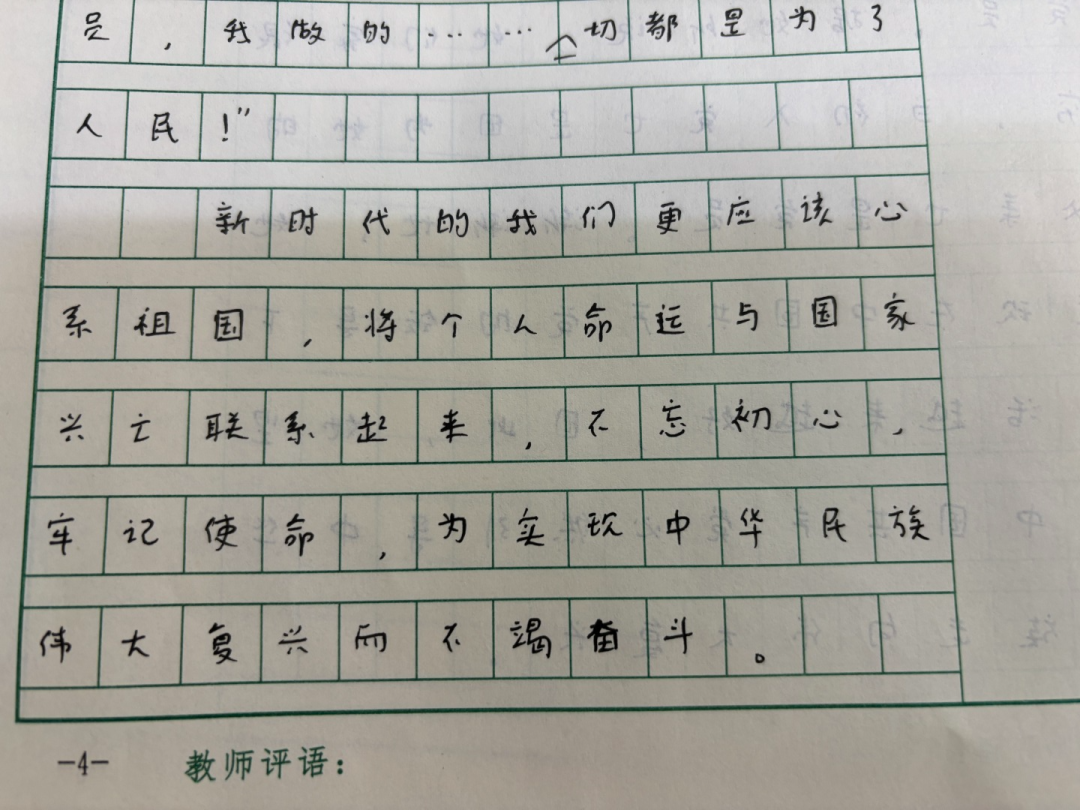 员，我做的…………一切都是为了
人民！”
新时代的我们更应该心
系祖国，将个人命运与国家
兴亡联系起来，不忘初心，
牢记使命，为实现中华民族
伟大复兴而不竭奋斗。
-4- 教师评语：